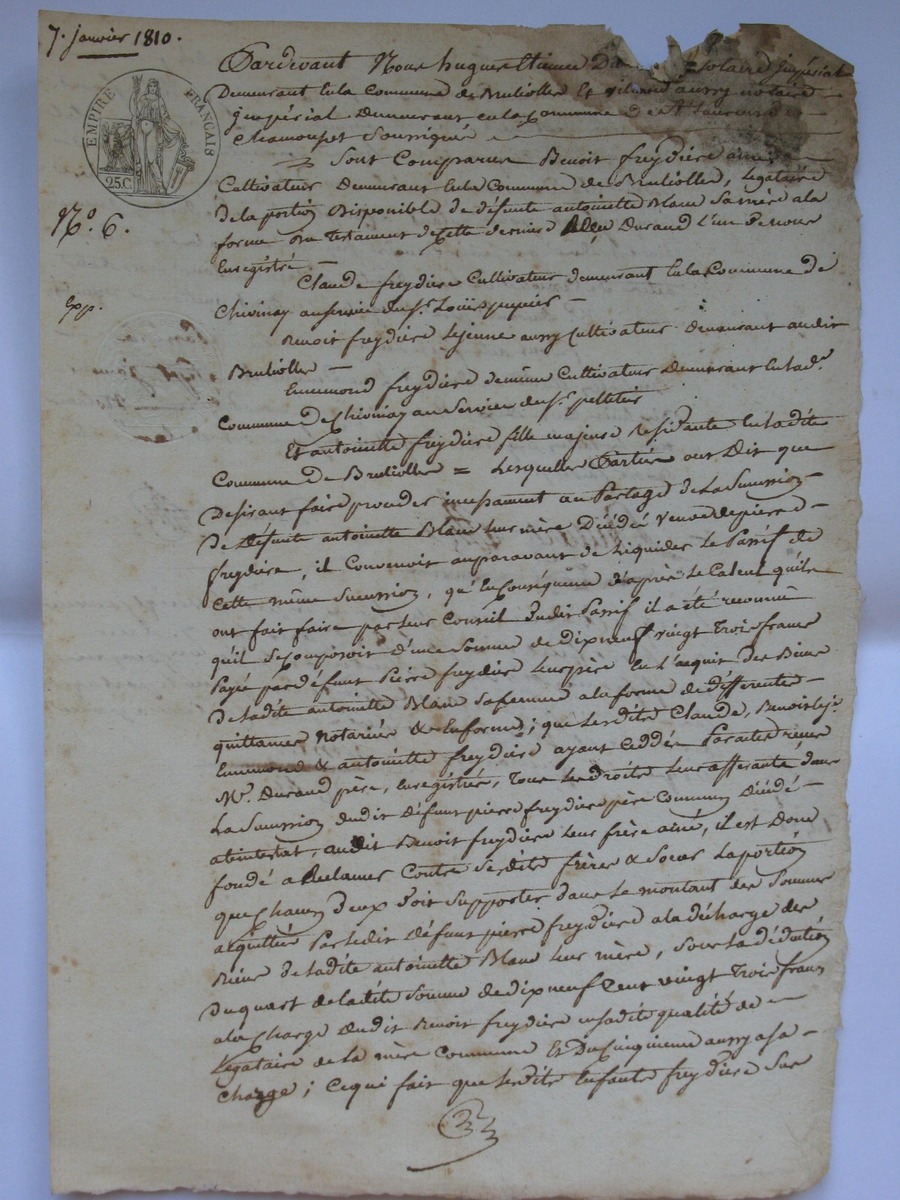 7. janvier 1810.
EMPIRE FRANÇAIS
25.C.
N.º 6.
exp.
Pardevant Nous hugues Etienne Du notaire jmpérial
Demeurant En la Commune de Brulliolles Et aussy notaire
jmpérial Demeurant en la Commune De St Laurent de
Chamousset Soussignés
Sont Comparus Benoit freydiere ainé
Cultivateur Demeurant En la Commune de Brulliolles, Legataire
De la portion Disponible de défunte antoinette Blanc Sa mère a la
forme Du Testament de Cette derniere Durand L'un De nous
Enregistré —
Claude freydiere Cultivateur demeurant En la Commune de
Chivinay au service du Sr. Loüis
Benoit freydiere Lejeune aussy Cultivateur Demeurant audit
Brulliolles —
Ennemond freydiere de même Cultivateur Demeurant En lade.
Commune De Chivinay au Service du Sr. pelletier
Et antoinette freydiere fille majeure residante En ladite
Commune De Brulliolles = Lesquelles Parties ont Dit que
Desirant faire proceder incessament au Partage De La Succession
De Défunte antoinette Blanc Leur mère Décédée Veuve de pierre
freydiere, il Convenoit auparavant de Liquider Le Passif de
Cette même Succession, qu'en Conséquence d'après Le Calcul qu'ils
ont fait faire par Leur Conseil Dudit Passif il a été reconnu
qu'il Se Composoit d'une Somme de Dix neuf vingt Trois francs
Payée par défunt Pierre freydiere Leur père En L'acquit Des Biens
De ladite antoinette Blanc Sa femme a la forme de différentes
quittances Notariées & En forme; que Lesdits Claude, Benoit Leje.
Ennemond & antoinette freydiere ayant Cédés Par actes
Me. Durand père, Enregistrés, Tous Les Droits Leur afferants dans
La Succession dudit Défunt pierre freydiere père Commun Décédé
abintestat, audit Benoit freydiere Leur frère ainé, il est Donc
fondé a Reclamer Contre Sesdits frères & Soeur La portion
que Chacun d'eux Doit Supporter dans Le montant des Sommes
acquittées Par Ledit Défunt pierre freydiere a la décharge des
Biens de ladite antoinette Blanc Leur mère, Sous La déduction
Du quart de ladite Somme de Dix neuf Cent vingt Trois francs
a la Charge Dudit Benoit freydiere en Sadite qualité de
Légataire de La mère Commune Et Du Cinquieme aussy a Sa
Charge; Ce qui fait que Lesdits Enfants freydiere Sur